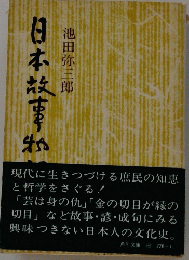 日本故事物
池田弥三郎
現代に生きつづける庶民の知恵
と哲学をさぐる！
「芸は身の仇」「金の切目が縁の
切目」など故事・諺・成句にみる
興味つきない日本人の文化史。